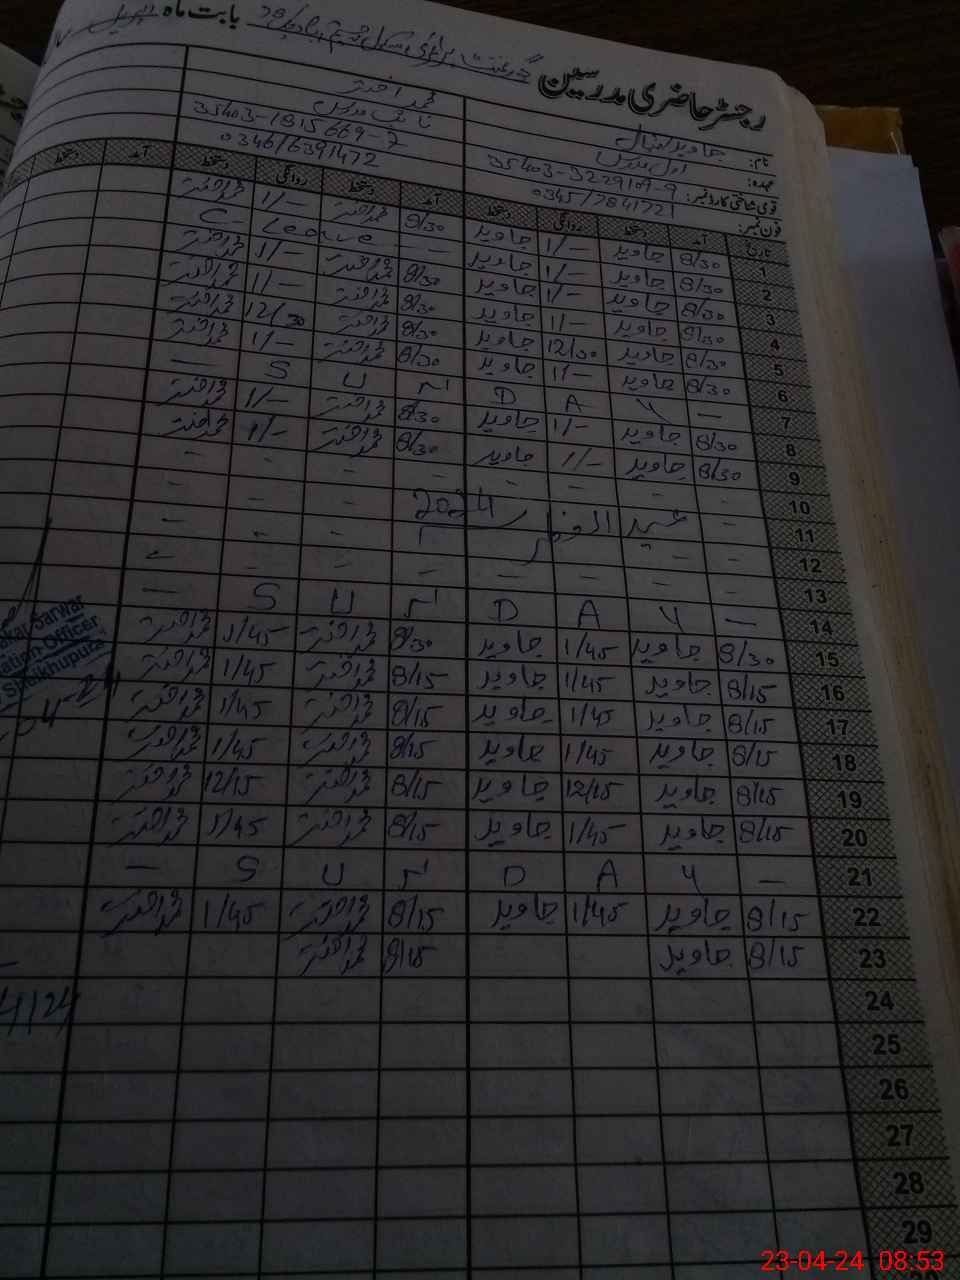 رجسٹر حاضری مدرسین گورنمنٹ پرائمری سکول بابت ماہ اپریل
نام: جاوید اقبال محمد افضل
عہدہ: اول مدرس نائب مدرس
قومی شناختی کارڈ نمبر: 35403-3229109-9 35403-1815669-7
فون نمبر: 0345/7841721 0346/6391472
تاریخ آمد دستخط روانگی دستخط آمد دستخط روانگی دستخط آمد دستخط
1 8/30 جاوید 1/- جاوید 8/30 محمد افضل 1/- محمد افضل
2 8/30 جاوید 1/- جاوید — — Leave C
3 8/30 جاوید 1/- جاوید 8/30 محمد افضل 1/- محمد افضل
4 8/30 جاوید 1/- جاوید 8/30 محمد افضل 1/- محمد افضل
5 8/30 جاوید 12/30 جاوید 8/30 محمد افضل 12/30 محمد افضل
6 8/30 جاوید 1/- جاوید 8/30 محمد افضل 1/- محمد افضل
7 — S U N D A Y —
8 8/30 جاوید 1/- جاوید 8/30 محمد افضل 1/- محمد افضل
9 8/30 جاوید 1/- جاوید 8/30 محمد افضل 1/- محمد افضل
10
11 عید الفطر 2024
12
13
14 — S U N D A Y —
15 8/30 جاوید 1/45 جاوید 8/30 محمد افضل 1/45 محمد افضل
16 8/15 جاوید 1/45 جاوید 8/15 محمد افضل 1/45 محمد افضل
17 8/15 جاوید 1/45 جاوید 8/15 محمد افضل 1/45 محمد افضل
18 8/15 جاوید 1/45 جاوید 8/15 محمد افضل 1/45 محمد افضل
19 8/15 جاوید 12/15 جاوید 8/15 محمد افضل 12/15 محمد افضل
20 8/15 جاوید 1/45 جاوید 8/15 محمد افضل 1/45 محمد افضل
21 — S U N D A Y —
22 8/15 جاوید 1/45 جاوید 8/15 محمد افضل 1/45 محمد افضل
23 8/15 جاوید 8/15 محمد افضل
24
25
26
27
28
29
Sarwar
Officer
Sheikhupura
4/24
23-04-24 08:53